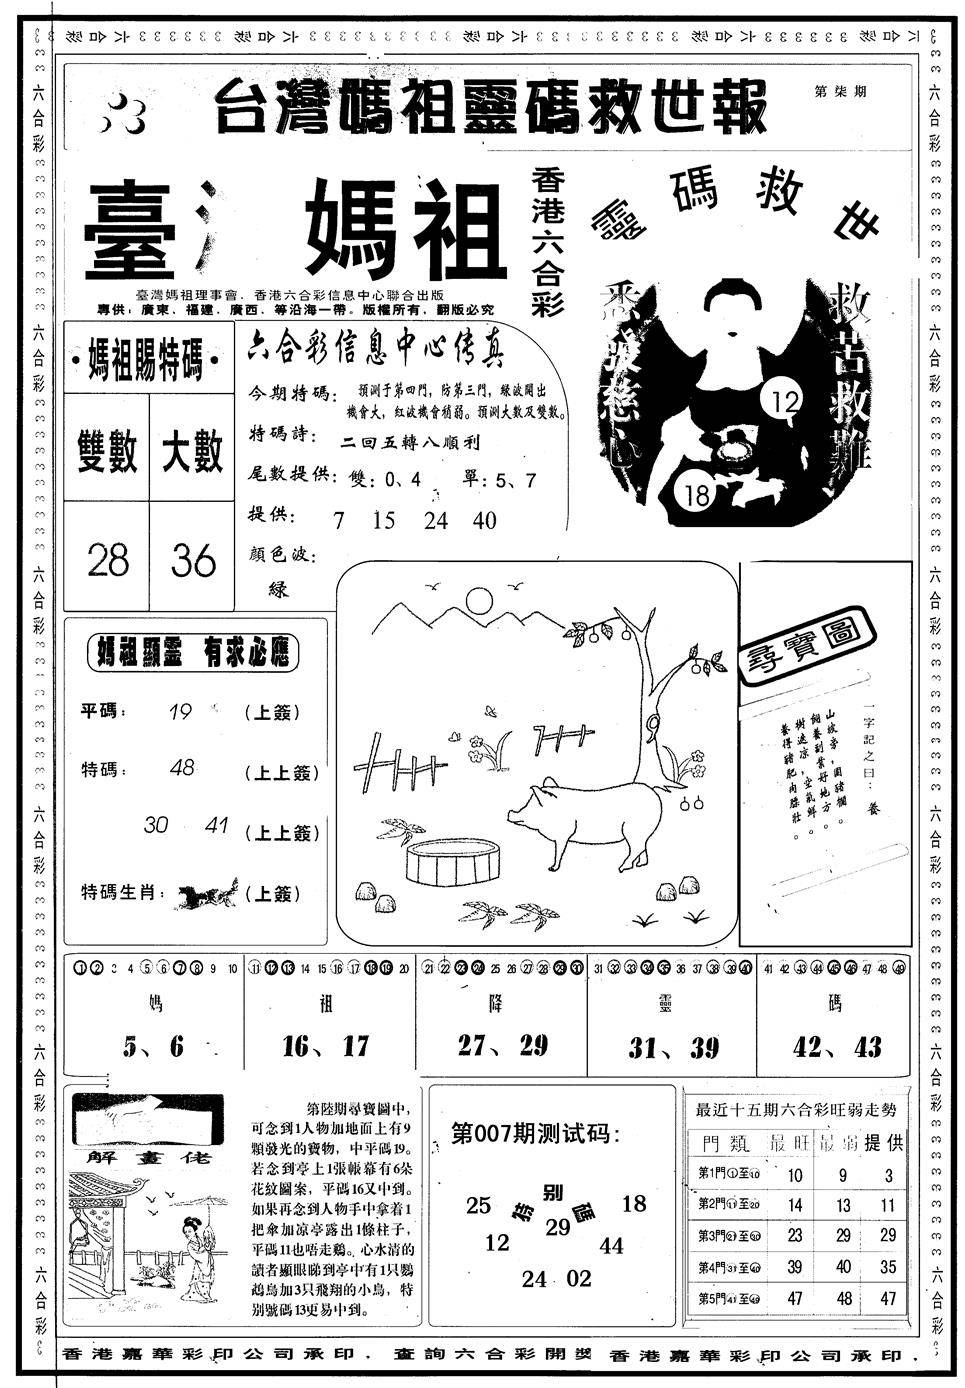 台灣媽祖靈碼救世報
第柒期
臺 媽祖
香港六合彩
靈碼救世
臺灣媽祖理事會．香港六合彩信息中心聯合出版
專供：廣東．福建．廣西．等沿海一帶。版權所有．翻版必究
悉發慈心
救苦救難
12
18
·媽祖賜特碼·
雙數 大數
28 36
六合彩信息中心传真
今期特碼： 預測于第四門，防第三門，綠波開出
機會大，紅波機會稍弱。預測大數及雙數。
特碼詩： 二回五轉八順利
尾數提供：雙：0、4 單：5、7
提供： 7 15 24 40
顔色波：
綠
媽祖顯靈 有求必應
平碼： 19 （上簽）
特碼： 48 （上上簽）
30 41 （上上簽）
特碼生肖： （上簽）
尋寶圖
一字記之曰：養
山坡旁，圍豬欄。
飼養到業好地方。
樹遮凉，空氣鮮。
養得豬肥肉膘壯。
1 2 3 4 5 6 7 8 9 10
11 12 13 14 15 16 17 18 19 20
21 22 23 24 25 26 27 28 29 30
31 32 33 34 35 36 37 38 39 40
41 42 43 44 45 46 47 48 49
媽 祖 降 靈 碼
5、6 16、17 27、29 31、39 42、43
解畫佬
第陸期尋寶圖中，
可念到1人物加地面上有9
顆發光的寶物，中平碼19。
若念到亭上1張帳幕有6朵
花紋圖案，平碼16又中到。
如果再念到人物手中拿着1
把傘加凉亭露出1條柱子，
平碼11也唔走鷄。心水清的
讀者顯眼睇到亭中有1只鸚
鵡鳥加3只飛翔的小鳥，特
別號碼13更易中到。
第007期测试码：
特别碼
25 18
29
12 44
24 02
最近十五期六合彩旺弱走勢
門類 最旺 最弱 提供
第1門①至⑩ 10 9 3
第2門⑪至⑳ 14 13 11
第3門㉑至㉚ 23 29 29
第4門㉛至㊵ 39 40 35
第5門㊶至㊾ 47 48 47
香港嘉華彩印公司承印．查詢六合彩開獎 香港嘉華彩印公司承印．